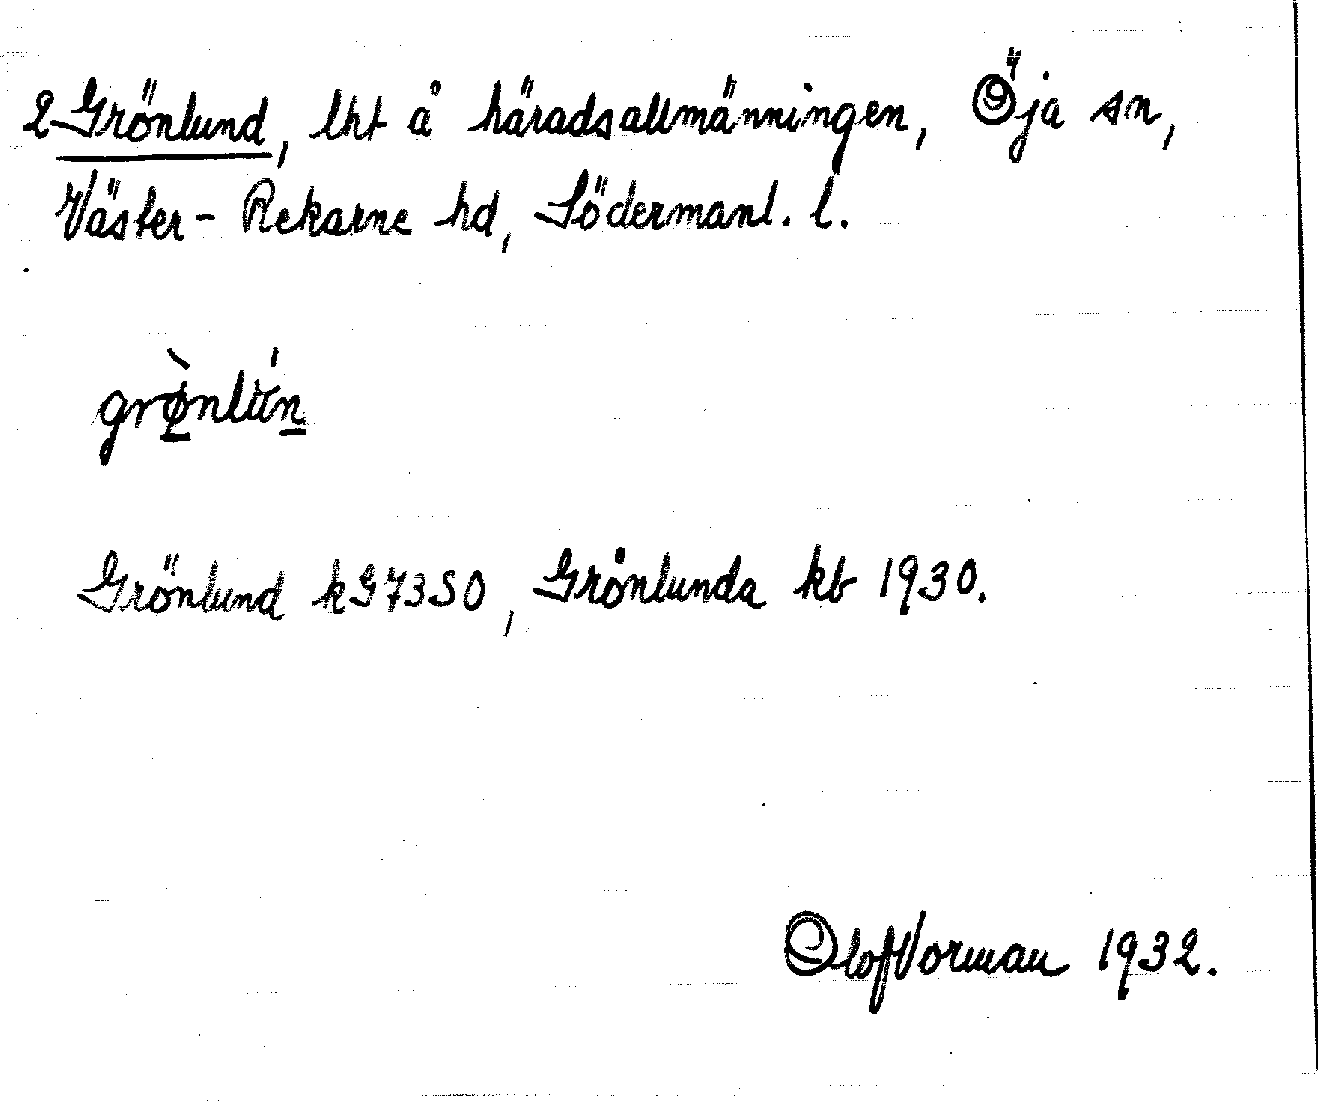 2 Grönlund, lht å häradsallmänningen, Öja sn,
Väster-Rekarne hd, Södermanl. l.
grø̀nlún
Grönlund kG73SO, Grönlunda kb 1930.
Olof Vorman 1932.